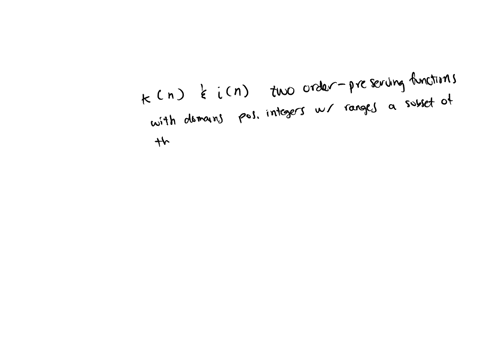 k(n) & i(n) two order-preserving functions
with domains pos. integers w/ ranges a subset of
th